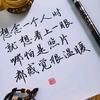 想念一个人时
就想看上一眼
哪怕是照片
都感觉很温暖